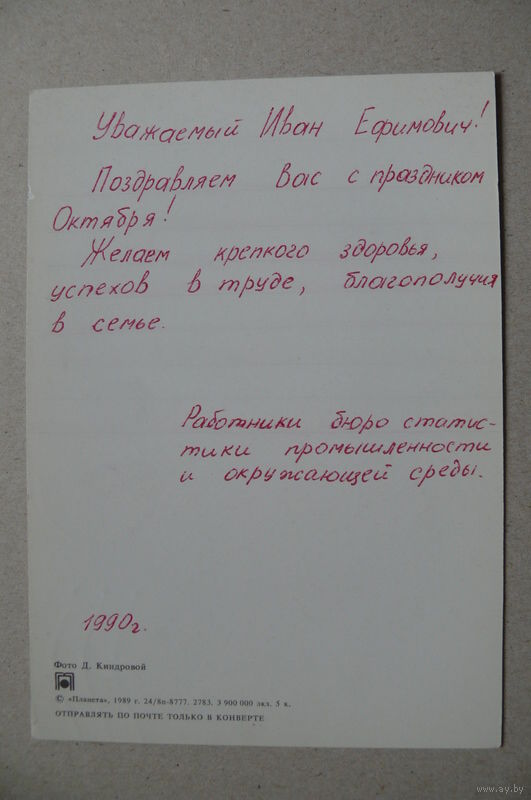 Уважаемый Иван Ефимович!
Поздравляем Вас с праздником
Октября!
Желаем крепкого здоровья,
успехов в труде, благополучия
в семье.
Работники бюро статис-
тики промышленности
и окружающей среды.
1990г.
Фото Д. Киндровой
© «Планета», 1989 г. 24/8п-8777. 2783. 3 900 000 экз. 5 к.
ОТПРАВЛЯТЬ ПО ПОЧТЕ ТОЛЬКО В КОНВЕРТЕ
www.ay.by